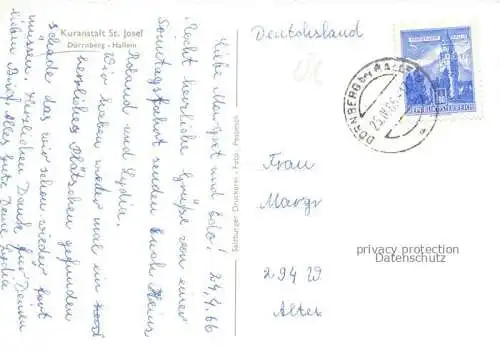 Kuranstalt St. Josef
Dürrnberg - Hallein
24.4.66
Liebe Margret und Udo!
Recht herzliche Grüße von einer
Sonntagsfahrt senden Euch Heinz
Roland und Lydia.
Wir haben wieder mal ein
herrliches Plätzchen gefunden
schade das wir schon wieder fort
müssen. Herzlichen Dank für Deinen
lieben Brief. Alles gute Deine Lydia
Salzburger Druckerei - Foto:
Deutschland
DÜRNBERG bei HALLEIN
REPUBLIK ÖSTERREICH
Frau
Margr
privacy protection
Datenschutz
29429
Alten